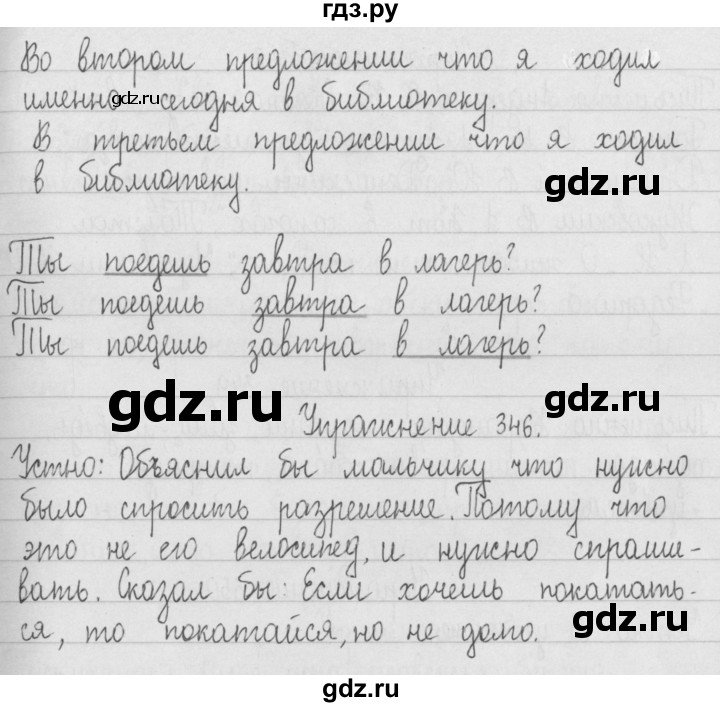 гдз.ру
Во втором предложении что я ходил
именно сегодня в библиотеку.
gdz.ru
В третьем предложении что я ходил
в библиотеку.
gdz.ru
Ты поедешь завтра в лагерь?
Ты поедешь завтра в лагерь?
Ты поедешь завтра в лагерь?
gdz.ru
Упражнение 346.
Устно: Объяснил бы мальчику что нужно
было спросить разрешение. Потому что
это не его велосипед, и нужно спраши-
вать. Сказал бы: Если хочешь покатать-
gdz.ru
ся, то покатайся, но не долго.
gdz.ru